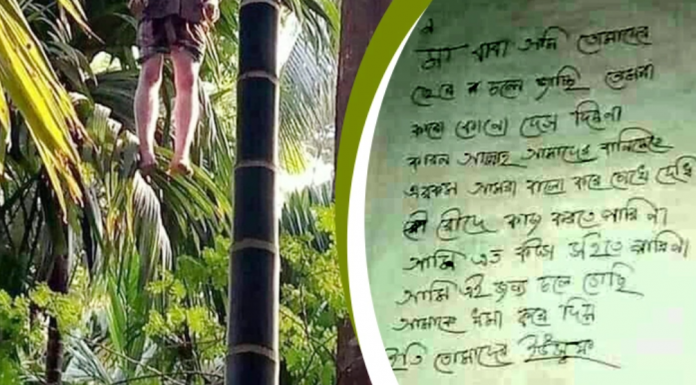 মা বাবা আমি তোমাদের
ছেরে চলে জাচ্ছি তোমরা
কারো কোনো দোস দিয়না
কারন আল্লাহ আমাদের বানিয়েছে
এরকম আমরা বালো করে চোখে দেখি
রৌদে কাজ করতে পারি না
আমি এত কষ্ট পারিনা
আমি এই জন্য চলে গেছি
আমাকে খমা করে দিয়
ইতি তোমাদের